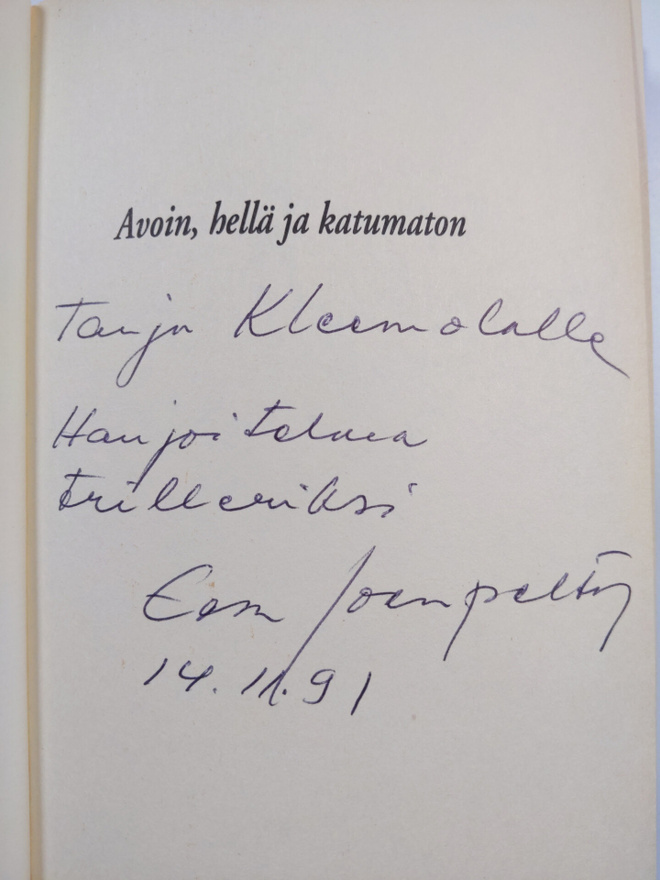 Avoin, hellä ja katumaton
Tanja Kleemolalle
Harjoitelmaa
trilleriksi
Eeva Joenpelto
14.11.91